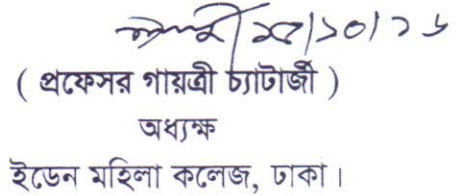 /১০/১৬
( প্রফেসর গায়ত্রী চ্যাটার্জী )
অধ্যক্ষ
ইডেন মহিলা কলেজ, ঢাকা।